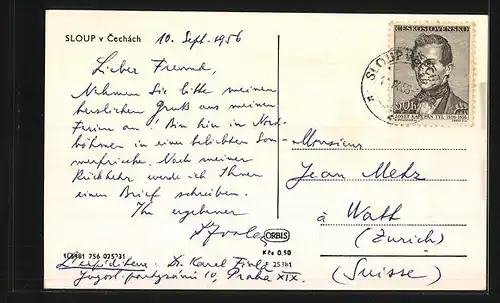 SLOUP v Čechách
10. Sept. 1956
Lieber Freund,
Nehmen Sie bitte meinen
herzlichen Gruß aus meinen
Ferien an! Bin hier in Nord-
böhmen in einer beliebten Som-
merfrische. Nach meiner
Rückkehr werde ich Ihnen
einen Brief schreiben.
Ihr ergebener
ORBIS
Kčs 0,50
25381
L'expéditeur: Dr. Karel
Jugosl. partyzánů 10, Praha XIX.
ČESKOSLOVENSKO
60h
JOSEF KAJETÁN TYL 1808-1856
SLOUP
Monsieur
Jean Metz
à Watt
(Zurich)
(Suisse)